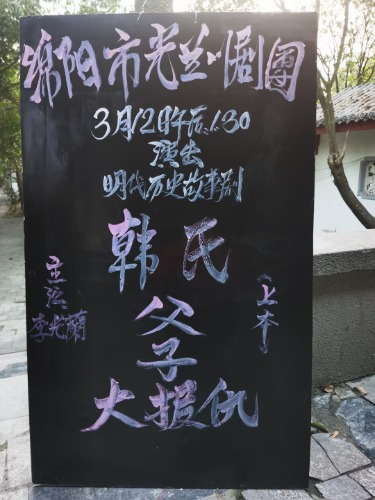 绵阳市光兰川剧團
3月12日午后1:30
演出
明代历史故事剧
韩氏
父子
大报仇
(上本)
主演:
李光蘭